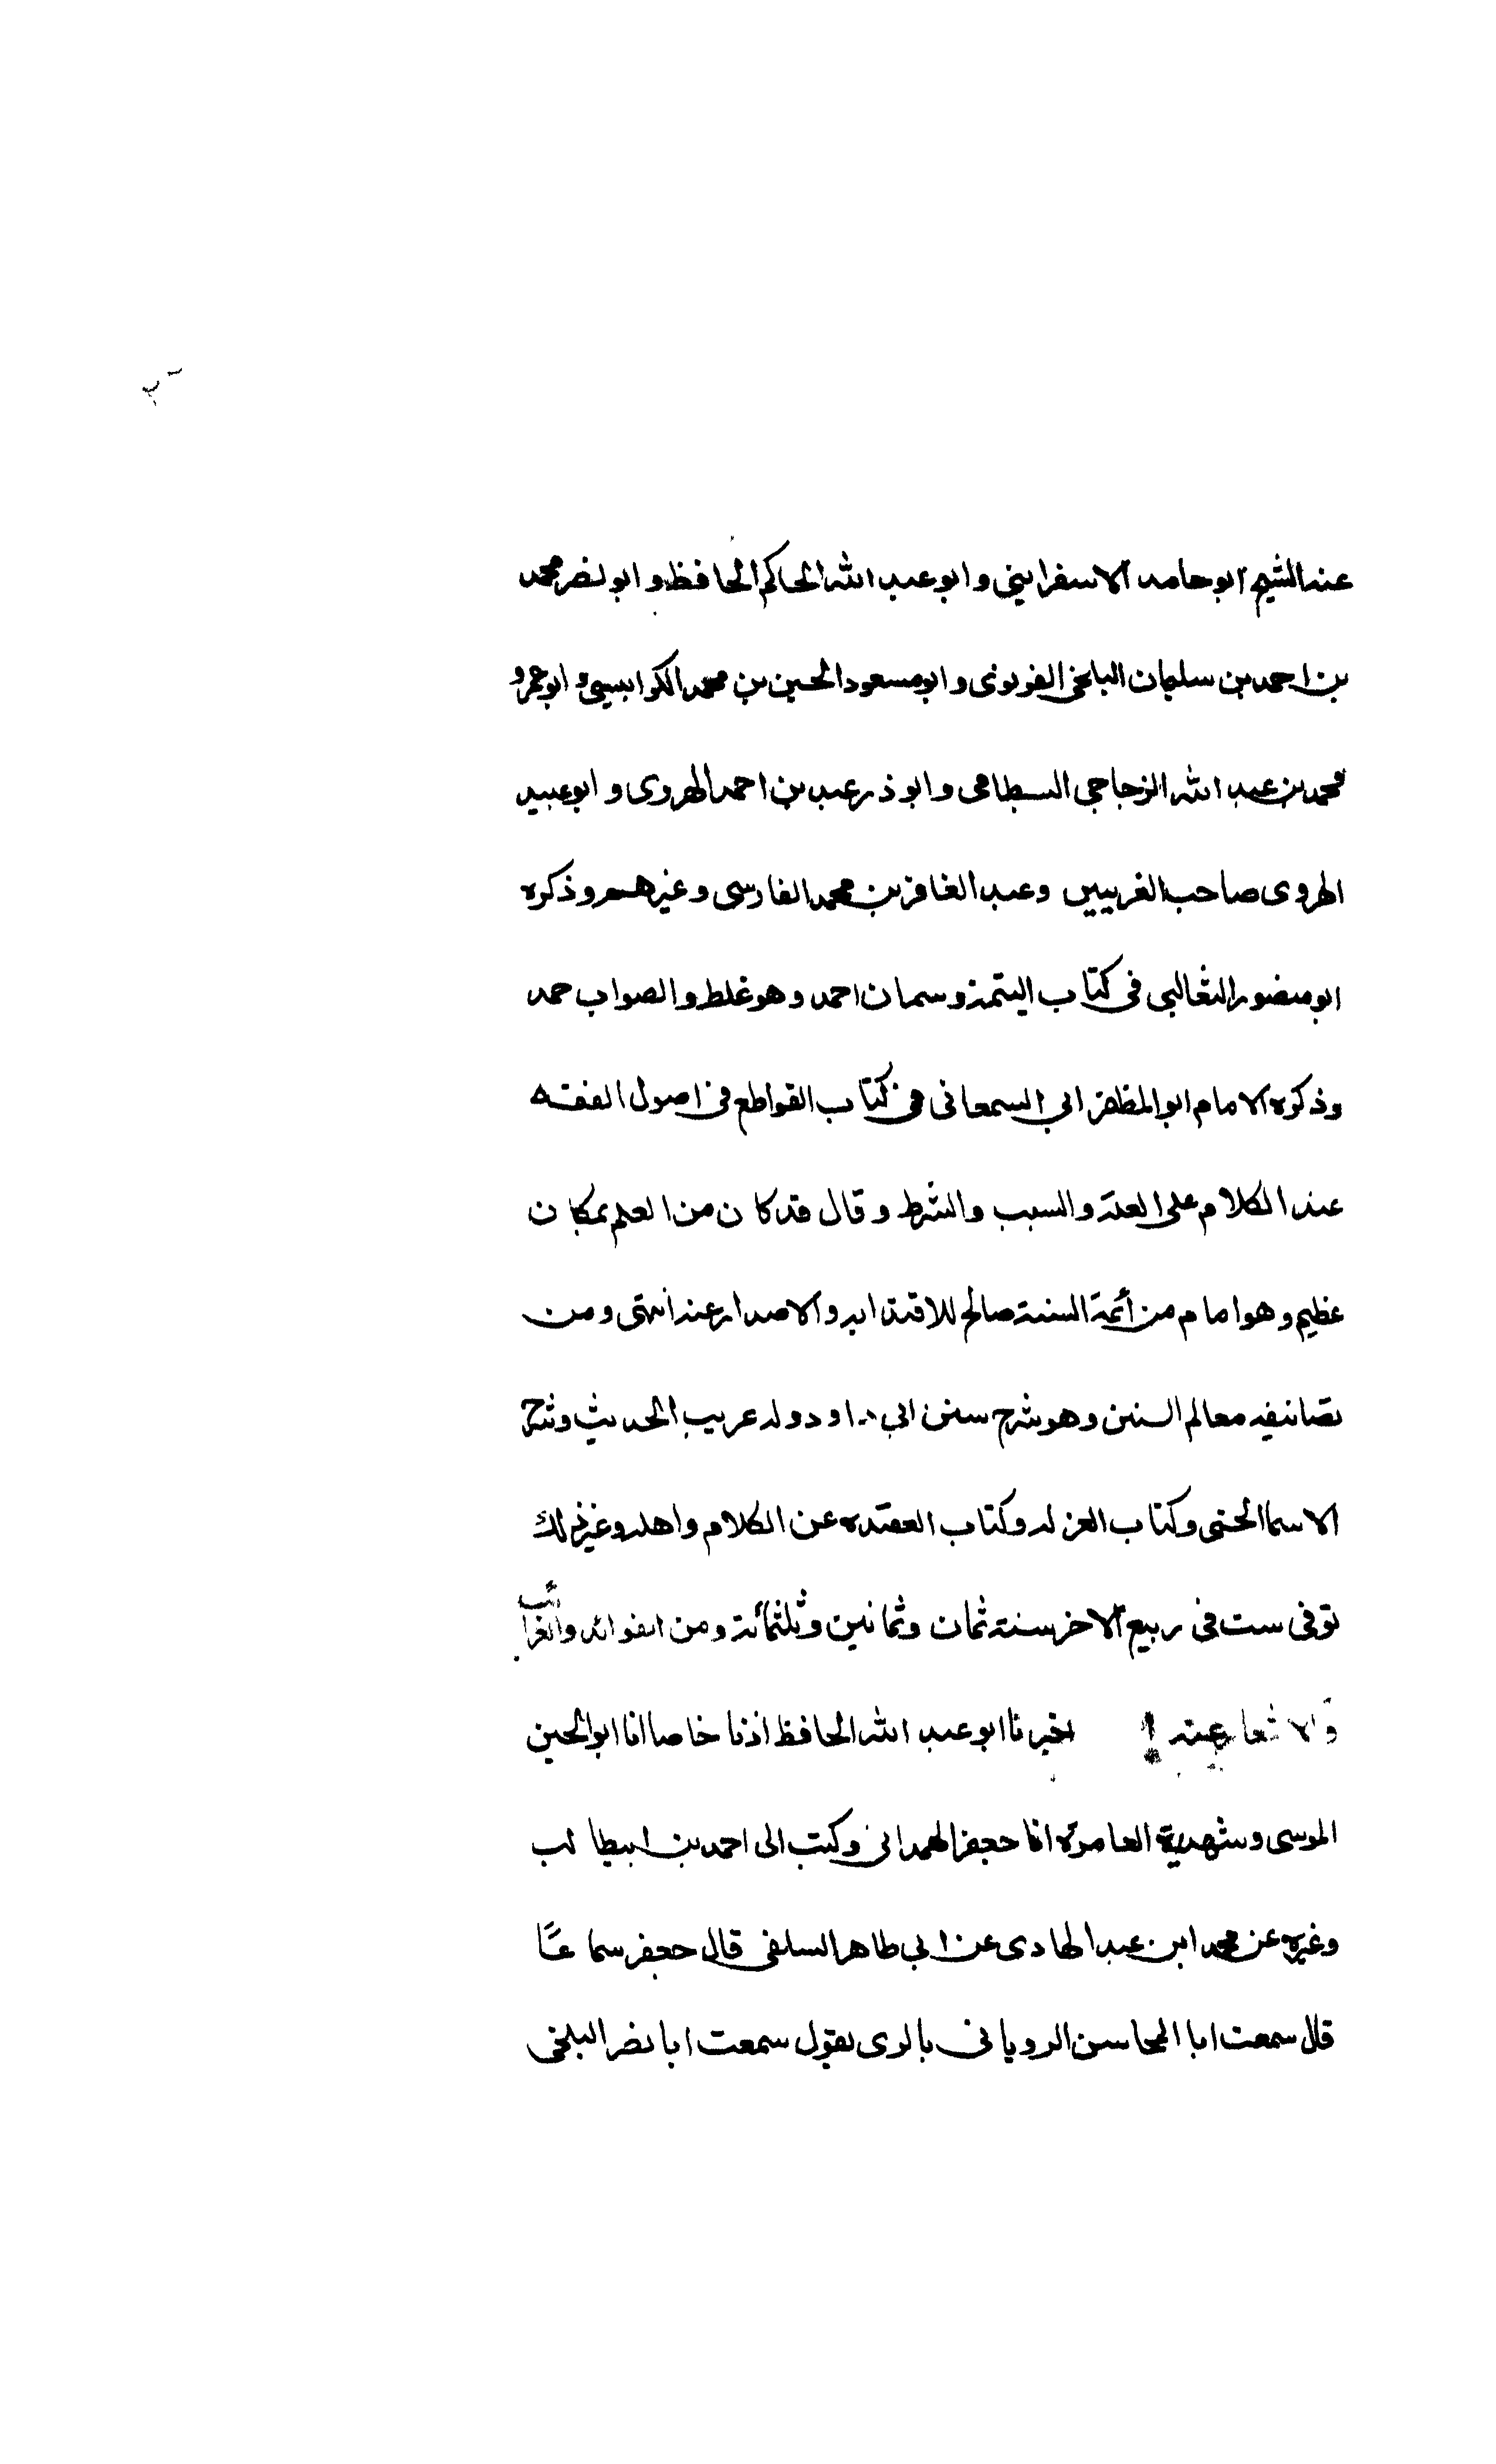 عند الشيخ ابو حامد الاسفراينى وابو عبد الله الحاكم الحافظ وابو نصر محمد
بن احمد بن سليمان البلخى الغزنوى وابو مسعود الحسين بن محمد الكرابيسى وابو عمرو
محمد بن عبد الله الزجاجى البسطامى وابو ذر عبد بن احمد الهروى وابو عبيد
الهروى صاحب الغريبين وعبد الغافر بن محمد الفارسى وغيرهم وذكره
ابو منصور الثعالبى فى كتاب اليتمة وسمان احمد وهو غلط والصواب حمد
وذكره الامام ابو المظفر ابى السمعانى فى كتاب القواطع فى اصول الفقه
عند الكلام على العلة والسبب والشرط وقال قد كان من العلم بمكان
عظيم وهو امام من أئمة السنة صالح للاقتدا به والاصدار عنه انتهى ومن
تصانيفه معالم السنن وهو شرح سنن ابى داود وله غريب الحديث وشرح
الاسما الحسنى وكتاب العزله وكتاب العقيده عن الكلام واهله وغير ذلك
توفى ست فى ربيع الاخر سنة ثمان وثمانين وثلثمائة ومن الفوائد والغرائب
والاشعار عنه اخبرنا ابو عبد الله الحافظ اذنا خاصا انا ابو الحسين
الموسى وشهدية العامرية انا جعفر الهمدانى وكتب الى احمد بن ابيطالب
وغيره عن محمد ابن عبد الهادى عن ابى طاهر السلفى قال جعفر سماعًا
قال سمعت ابا المحاسن الرويانى بالرى يقول سمعت ابا نصر البلخى